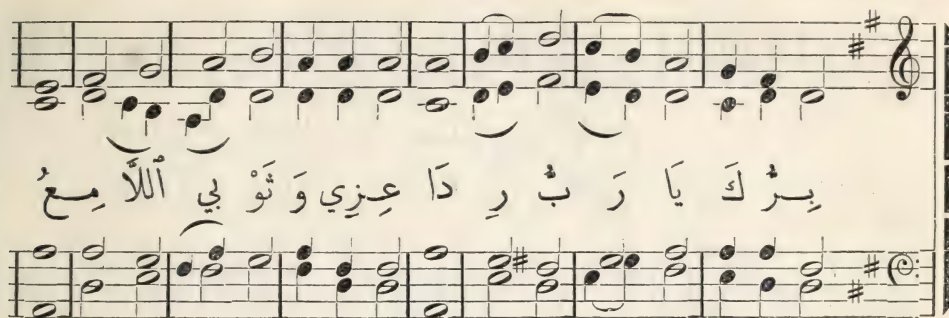 بِرُّ كَ يَا رَ بُّ رِ دَا عِزِي وَ ثَوْ بِي ٱللَّا مِعُ